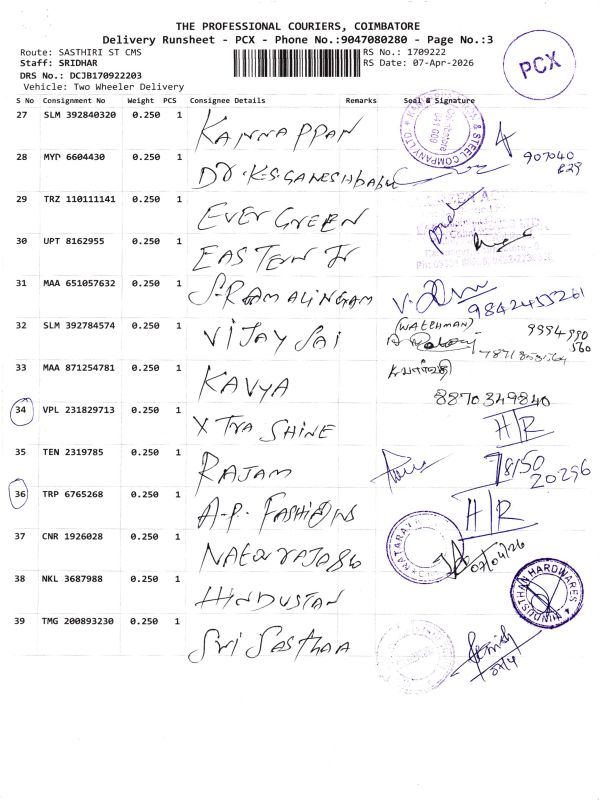 THE PROFESSIONAL COURIERS, COIMBATORE
Delivery Runsheet - PCX - Phone No.:9047080280 - Page No.:3
Route: SASTHIRI ST CMS
RS No.: 1709222
Staff: SRIDHAR
RS Date: 07-Apr-2026
DRS No.: DCJB170922203
Vehicle: Two Wheeler Delivery
PCX
S No Consignment No Weight PCS Consignee Details Remarks Seal & Signature
27 SLM 392840320 0.250 1 KANNAPPAN
& STEEL COMPANY LTD.
28 MYP 6604430 0.250 1 DR.K.S.GANESHBABU
907040
829
29 TRZ 110111141 0.250 1 EVER GREEN
30 UPT 8162955 0.250 1 EASTERN
31 MAA 651057632 0.250 1 S.RAMALINGAM
9842455261
32 SLM 392784574 0.250 1 VIJAY SAI
(WATCHMAN)
9994990
560
33 MAA 871254781 0.250 1 KAVYA
8870349840
34 VPL 231829713 0.250 1 XTRA SHINE H/R
35 TEN 2319785 0.250 1 RAJAM
78150
20296
36 TRP 6765268 0.250 1 A.P. FASHIONS H/R
37 CNR 1926028 0.250 1
NATARAJ
07/04/26
38 NKL 3687988 0.250 1 HINDUSTAN
HINDUSTHAN HARDWARES
39 TMG 200893230 0.250 1 Sri Sasthaa
07/4